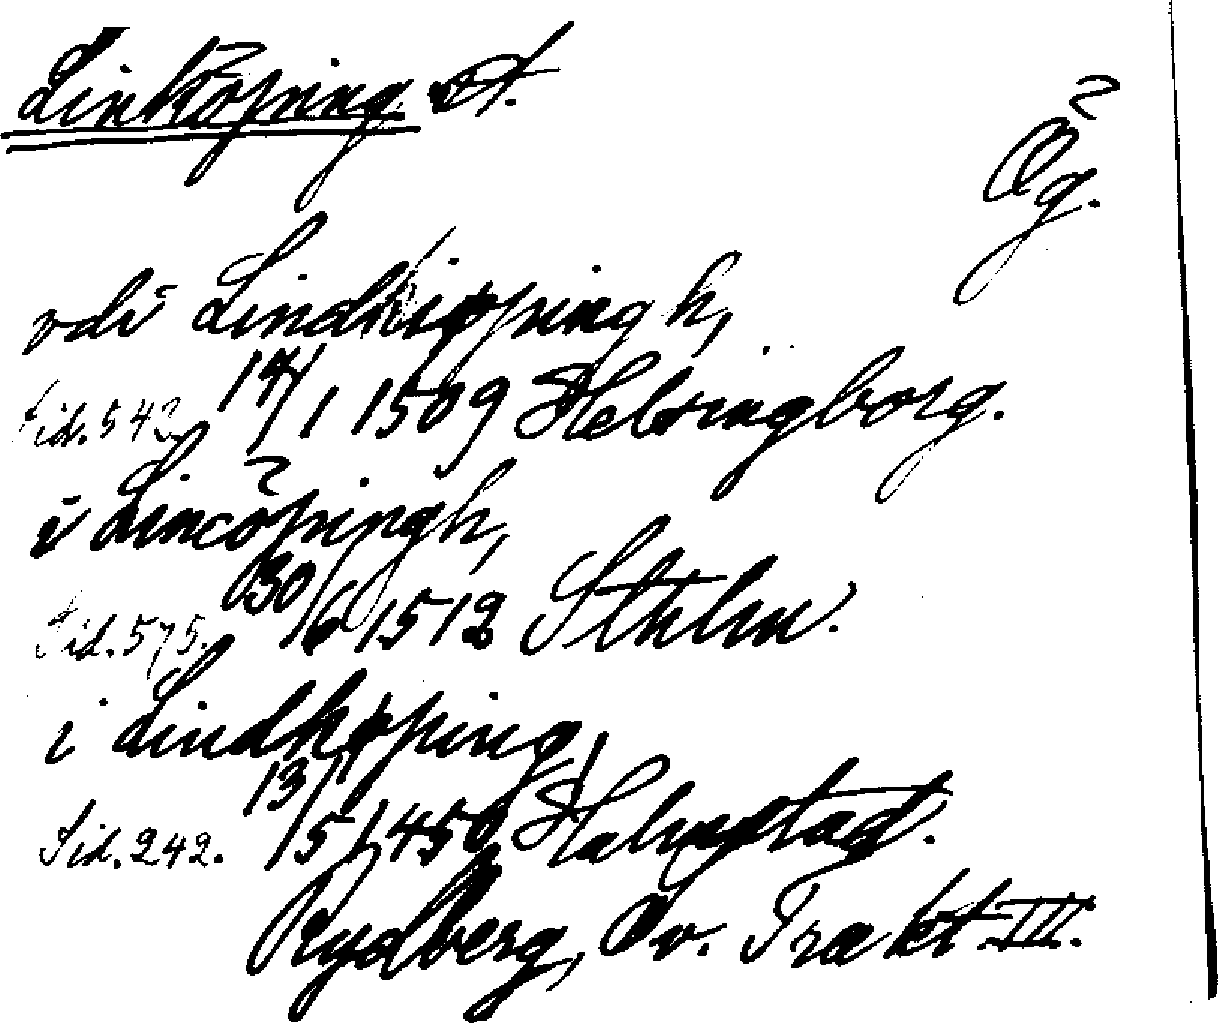 Linköping St.
Ög.
vdi Lindkiøping h,
Sid. 542. 14/1 1509 Helsingborg.
i Lincöpingh,
Sid. 575. 30/6 1512 Sthlm.
i Lindkøping,
Sid. 242. 13/5 1450 Halmstad.
Rydberg, Sv. Trakt. III.